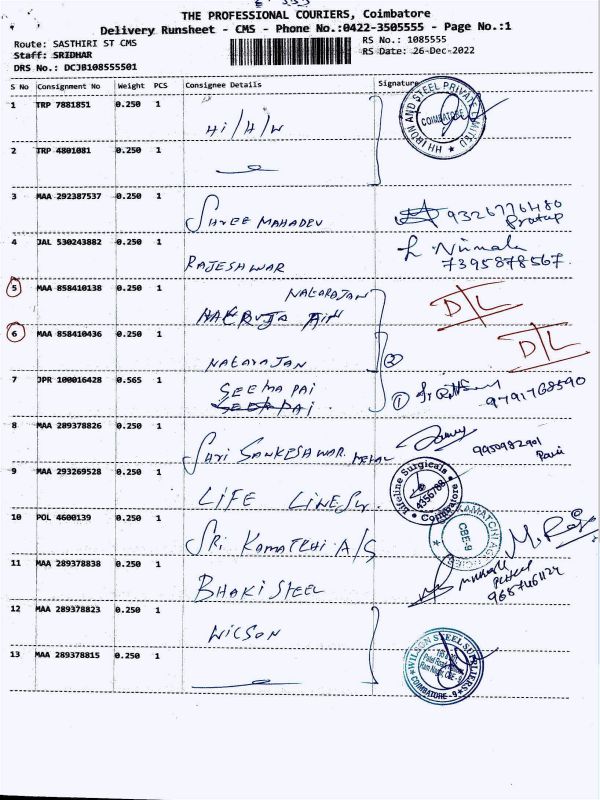 THE PROFESSIONAL COURIERS, Coimbatore
Delivery Runsheet - CMS - Phone No.:0422-3505555 - Page No.:1
Route: SASTHIRI ST CMS
RS No.: 1085555
Staff: SRIDHAR
RS Date: 26-Dec-2022
DRS No.: DCJB108555501
S No Consignment No Weight PCS Consignee Details Signature
1 TRP 7881851 0.250 1
Hi/H/W
HH IRON AND STEEL PRIVATE LIMITED
COIMBATORE
2 TRP 4801081 0.250 1
3 MAA 292387537 0.250 1
SHREE MAHADEV
9326776480
Pratap
4 JAL 530243882 0.250 1
RAJESHWAR
Nirmala
7395878567
5 MAA 858410138 0.250 1
NATARAJAN
D/L
6 MAA 858410436 0.250 1
NATARAJAN
2
D/L
7 JPR 100016428 0.565 1
SEEMA PAI
1
9791768590
8 MAA 289378826 0.250 1
SHRI SANKESHWAR METAL
9950982901
9 MAA 293269528 0.250 1
LIFE LINE
Lifeline Surgicals
4356788
Coimbatore
10 POL 4600139 0.250 1
SRI KAMATCHI A/S
CBE-9
M. Raj
11 MAA 289378838 0.250 1
BHAKI STEEL
12 MAA 289378823 0.250 1
WILSON
WILSON STEEL SUPPLIERS
Ram Nagar, CBE-9
COIMBATORE - 9
13 MAA 289378815 0.250 1